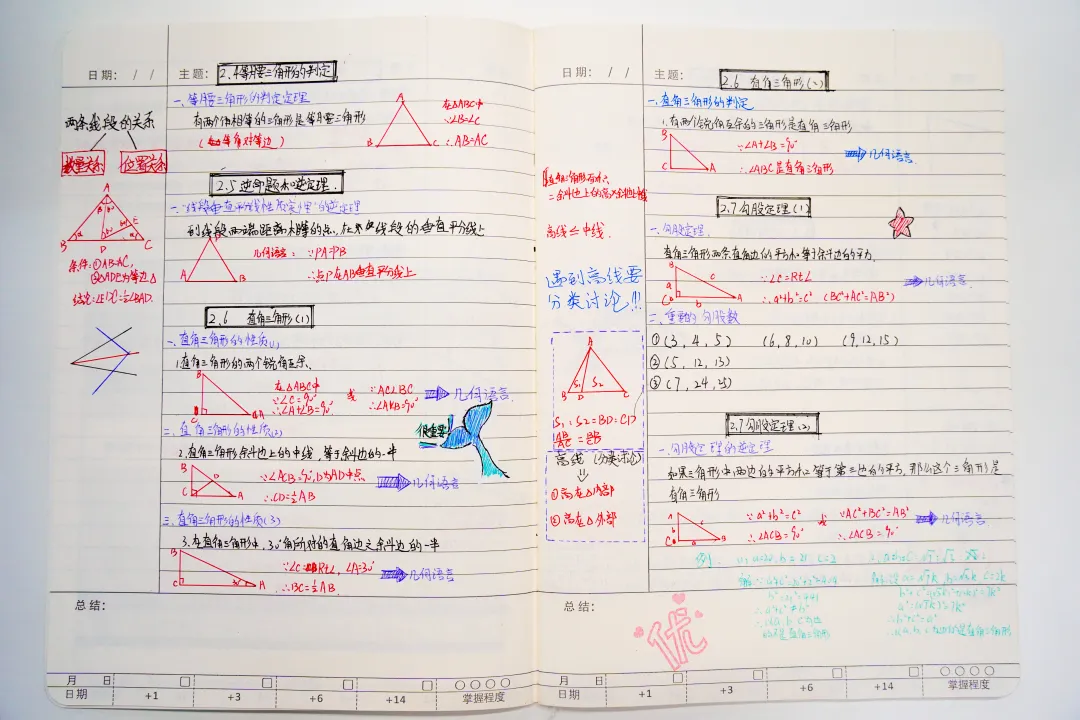 日期: / /
主题: 2.4等腰三角形的判定
两条线段的关系
数量关系 位置关系
A
B D C
E
条件:①AB=AC,
②△ADE为等边△
结论:∠EDC=½∠BAD.
一、等腰三角形的判定定理
有两个角相等的三角形是等腰三角形
(等角对等边)
A
B C
在△ABC中
∵∠B=∠C
∴AB=AC
2.5 逆命题和逆定理.
一."线段垂直平分线性质定理"的逆定理
到线段两端距离相等的点,在线段的垂直平分线上
A B
几何语言: ∵PA=PB
∴点P在AB垂直平分线上
2.6 直角三角形(1)
一、直角三角形的性质(1)
1.直角三角形的两个锐角互余.
B
C A
在△ABC中
∵∠C=90°
∴∠A+∠B=90°
或 ∵AC⊥BC
∴∠A+∠B=90°
几何语言.
很重要!
二、直角三角形的性质(2)
2.直角三角形斜边上的中线,等于斜边的一半
B
D
C A
∵∠ACB=90°,D为AB中点
∴CD=½AB
几何语言
三、直角三角形的性质(3)
3.在直角三角形中,30°角所对的直角边是斜边的一半
B
C 30° A
∵∠C=Rt∠, ∠A=30°
∴BC=½AB
几何语言
总结:
月 日
日期 +1 +3 +6 +14 掌握程度
日期: / /
主题: 2.6 直角三角形(2)
直角三角形
斜边上的高
高线≤中线.
遇到高线要
分类讨论!!!
A
S₁ S₂
B D C
S₁:S₂=BD:CD
高线(分类讨论)
①高在△内部
②高在△外部
一.直角三角形的判定
1.有两个锐角互余的三角形是直角三角形
B
C A
∵∠A+∠B=90°
∴△ABC是直角三角形
几何语言.
2.7勾股定理(1)
一.勾股定理.
直角三角形两条直角边的平方和等于斜边的平方.
B
a c
C b A
∵∠C=Rt∠
∴a²+b²=c² (BC²+AC²=AB²)
几何语言.
二、重要的勾股数
①(3,4,5) (6,8,10) (9,12,15)
②(5,12,13)
③(7,24,25)
2.7勾股定理(2)
一.勾股定理的逆定理
如果三角形中两边的平方和等于第三边的平方,那么这个三角形是
直角三角形
∵a²+b²=c²
∴∠ACB=90°
或 ∵AC²+BC²=AB²
∴∠ACB=90°
几何语言
例.
不是直角三角形
是直角三角形
总结:
优
月 日
日期 +1 +3 +6 +14 掌握程度